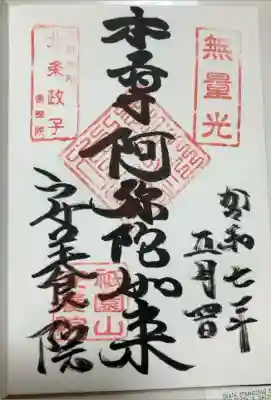 無量光
令和七年
五月四日
本尊阿弥陀如来
祇園山
北条政子
安養院